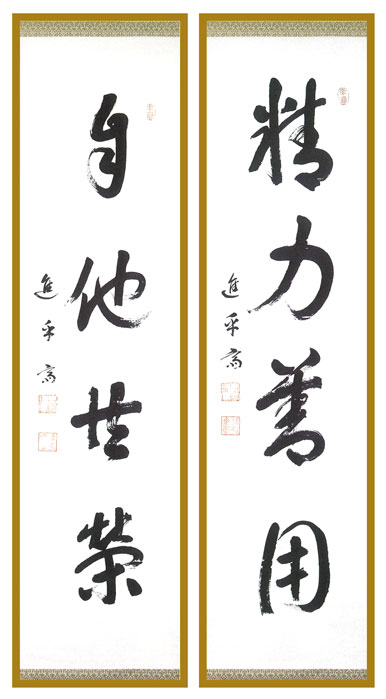 精力善用
進乎斎
自他共栄
進乎斎